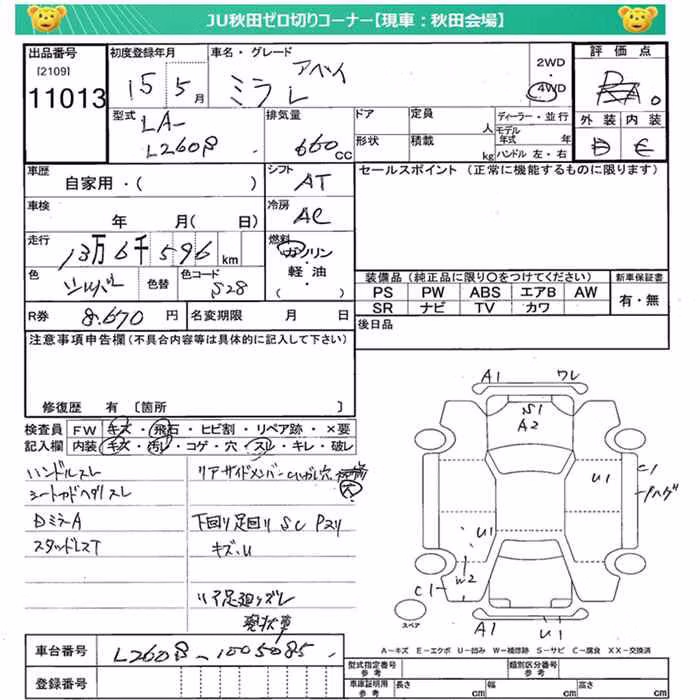 JU秋田ゼロ切りコーナー【現車：秋田会場】
出品番号
[2109]
11013
初度登録年月
15 5月
車名・グレード
アベイ
ミラ
2WD
4WD
評価点
外装 内装
D
型式
LA-
排気量
660cc
ドア
定員
人
形状
積載
kg
ディーラー・並行
モデル年式
年
ハンドル 左・右
車歴
自家用・( )
シフト
AT
車検
年 月( 日)
冷房
AC
走行
13万6千596km
燃料
ガソリン
軽油
( )
色
シルバー
色替
色コード
S28
R券
8.670円
名変期限 月 日
セールスポイント (正常に機能するものに限ります)
装備品(純正品に限り○をつけてください)
PS PW ABS エアB AW
SR ナビ TV カワ
新車保証書
有・無
後日品
注意事項申告欄(不具合内容等は具体的に記入して下さい)
修復歴 有 [箇所 ]
検査員記入欄
FW キズ・飛石・ヒビ割・リペア跡・×要
内装 キズ・汚レ・コゲ・穴・スレ・キレ・破レ
ハンドルスレ
DミラーA
スタッドレスT
リアサイドメンバー
穴
下回り足回りSC
キズ・U
A1 ワレ
S1
A2
U1
C1
U1
C1
W2
A1 U1
スペア
A－キズ E－エクボ U－凹み W－補修跡 S－サビ C－腐食 XX－交換済
車台番号
登録番号
型式指定番号
参考
類別区分番号
参考
車庫証明用
参考
長さ cm
幅 cm
高さ cm